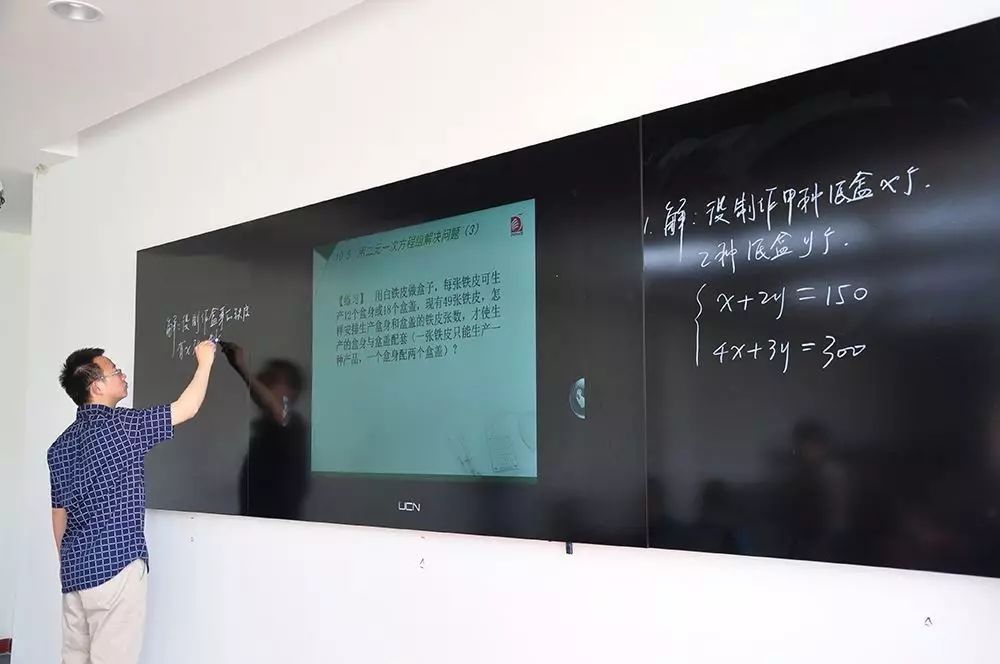 解：设制作盒身的铁皮
10.5 用二元一次方程组解决问题（3）
【练习】 用白铁皮做盒子，每张铁皮可生
产12个盒身或18个盒盖，现有49张铁皮，怎
样安排生产盒身和盒盖的铁皮张数，才使生
产的盒身与盒盖配套（一张铁皮只能生产一
种产品，一个盒身配两个盒盖）？
UCN
1. 解：设制作甲种底盒x个.
乙种底盒y个.
x+2y=150
4x+3y=300